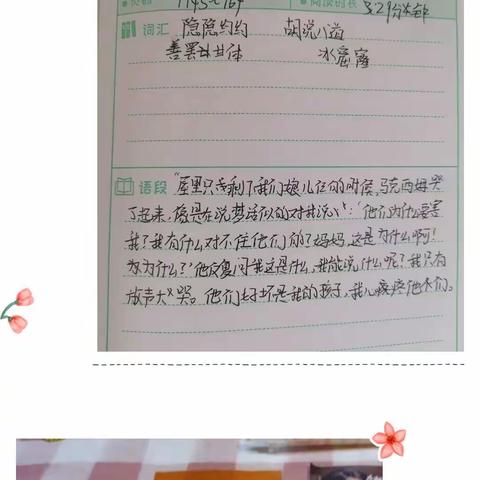 阅读时长 32分钟
词汇 隐隐约约 胡说八道
善罢甘休 水蜜
语段 "屋里只剩下我们娘儿仨的时候,马克西姆哭
了起来,像是在说梦话似的对我说:'他们为什么要害
我?我有什么对不住他们的?妈妈,这是为什么啊!
为什么?'他反复问我这是什么,我能说什么呢?我只有
放声大哭。他们好坏是我的孩子,我心疼他们。